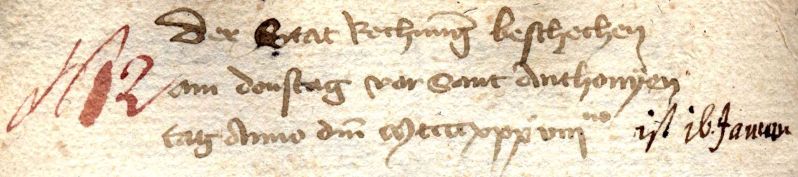 Der Statt Rechnung beschechen
am donstag vor Sant Anthonyen
tag Anno dm Mccccxxxviii no ist 16 Januar